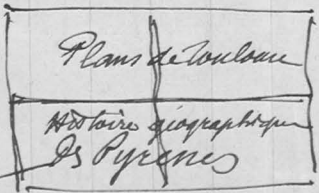 Plans de Toulouse
Histoire géographique
Des Pyrénées